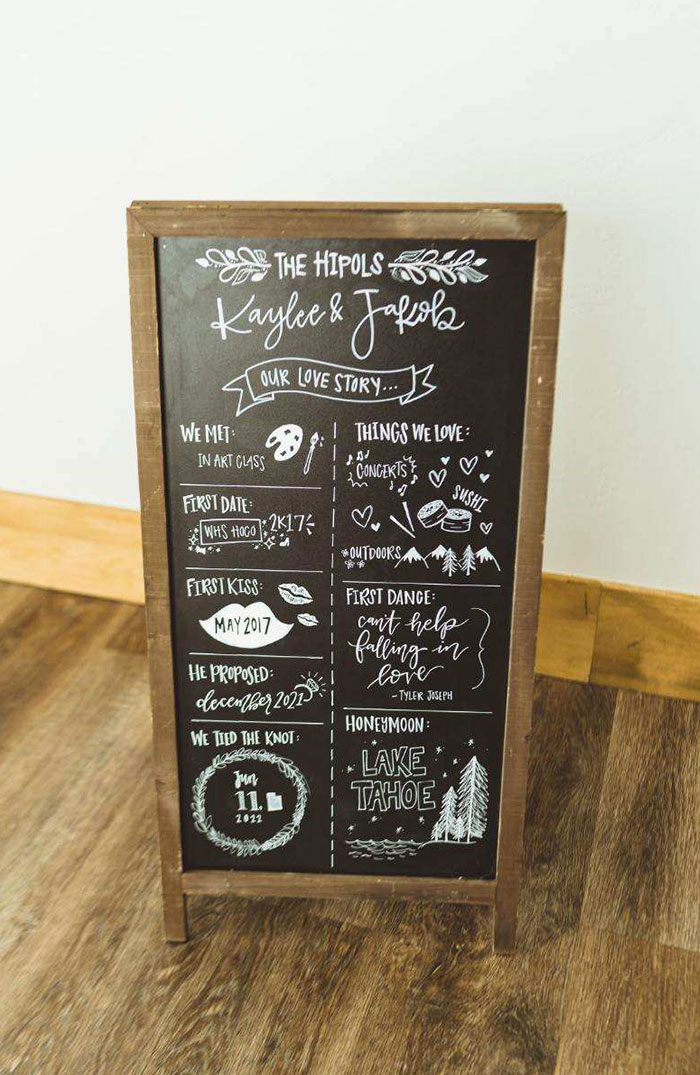 THE HIPOLS
Kaylee & Jakob
OUR LOVE STORY...
WE MET:
IN ART CLASS
FIRST DATE:
WHS HOCO 2K17
FIRST KISS:
MAY 2017
HE PROPOSED:
december 2021
WE TIED THE KNOT:
Jun
11,
2022
THINGS WE LOVE:
CONCERTS
SUSHI
OUTDOORS
FIRST DANCE:
can't help
falling in
love
- TYLER JOSEPH
HONEYMOON:
LAKE
TAHOE